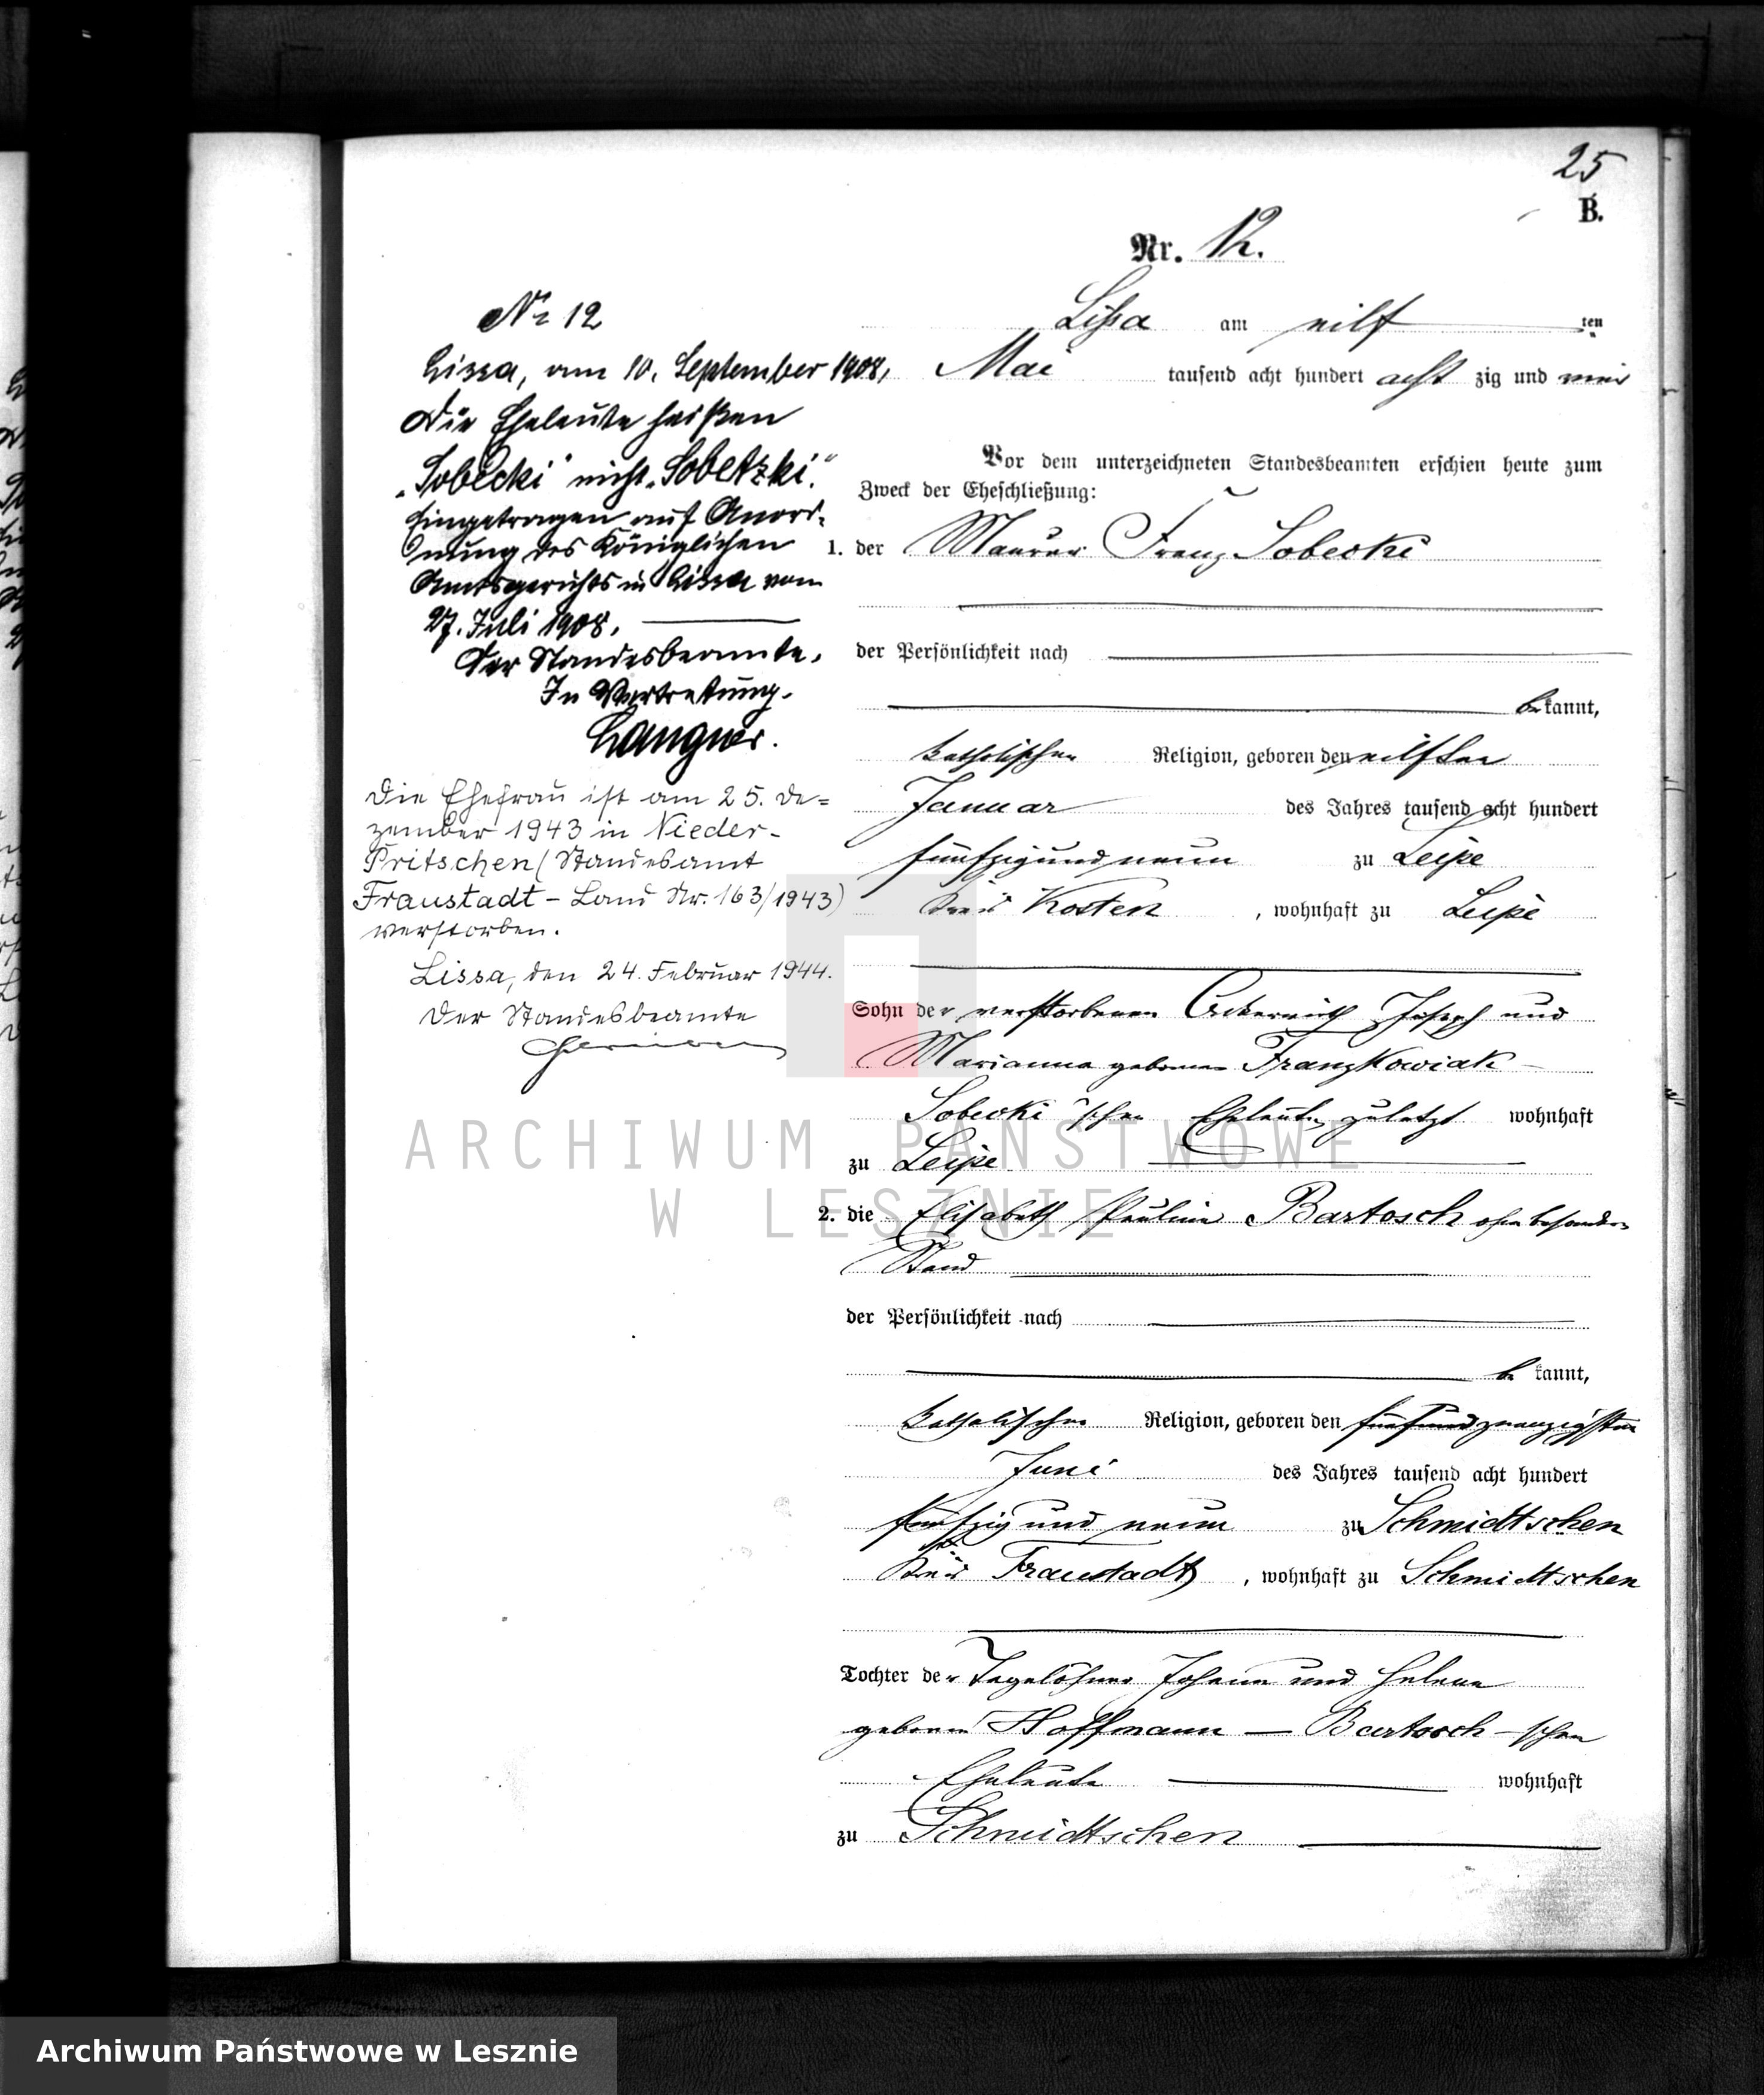 25
B.
Nr. 12.
Lissa am eilf ten
Mai tausend acht hundert acht zig und
Vor dem unterzeichneten Standesbeamten erschien heute zum
Zweck der Eheschließung:
1. der Maurer Franz Sobecki
der Persönlichkeit nach
bekannt,
katholischer Religion, geboren den eilften
Januar des Jahres tausend acht hundert
fünfzig und neun zu Leipe
Kreis Kosten, wohnhaft zu Leipe
Sohn der verstorbenen Ackerwirth Joseph und
Marianna geborene Franzkowiak
Sobecki'schen Eheleute, zuletzt wohnhaft
zu Leipe
2. die Elisabeth Pauline Bartosch ohne besonderen
Stand
der Persönlichkeit nach
be kannt,
katholischer Religion, geboren den fünfundzwanzigsten
Juni des Jahres tausend acht hundert
fünfzig und neun zu Schmidtschen
Kreis Fraustadt, wohnhaft zu Schmidtschen
Tochter der Tagelöhner Johann und Helene
geborene Hoffmann — Bartosch - schen
Eheleute wohnhaft
zu Schmidtschen
No 12
Lissa, am 10. September 1908,
Die Eheleute heißen
„Sobecki" nicht „Sobetzki."
Eingetragen auf Anord-
nung des Königlichen
Amtsgerichts in Lissa vom
27. Juli 1908.
Der Standesbeamte.
In Vertretung.
Langner.
Die Ehefrau ist am 25. De=
zember 1943 in Nieder-
Pritschen (Standesamt
Fraustadt - Land Nr. 163/1943)
verstorben.
Lissa, den 24. Februar 1944.
Der Standesbeamte
ARCHIWUM PAŃSTWOWE
W LESZNIE
Archiwum Państwowe w Lesznie